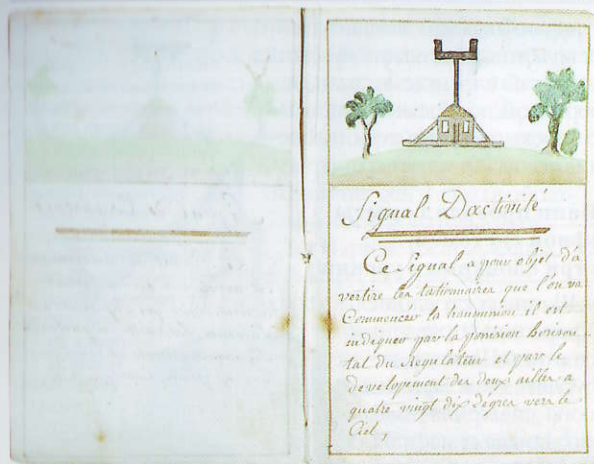 Signal Dactivité
Ce Signal a pour objet d'a
vertire les stationnaires que l'on va
Commencer la transmision il est
indiquer par la position horison
tal du Regulateur et par le
developement des deux ailles a
quatre vingt dix dégres vers le
Ciel,